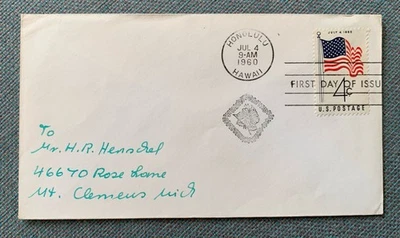 HONOLULU
JUL 4
9-AM
1960
HAWAII
JULY 4 1960
FIRST DAY OF ISSU
4c
U.S. POSTAGE
To
Mr. H. R. Henschel
46670 Rose Lane
Mt. Clemens Mich